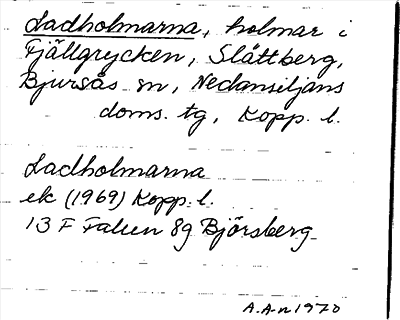 Ladholmarna, holmar i
Fjällgrycken, Slättberg,
Bjursås sn, Nedansiljans
doms. tg, Kopp. l.
Ladholmarna
ek (1969) Kopp. l.
13 F Falun 8g Björsberg
A.A-n 1970